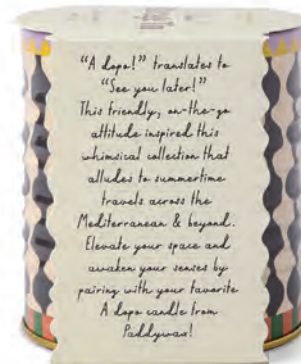 “A dopo!” translates to
“See you later!”
This friendly, on-the-go
attitude inspired this
whimsical collection that
alludes to summertime
travels across the
Mediterranean & beyond.
Elevate your space and
awaken your senses by
pairing with your favorite
A dopo candle from
Paddywax!